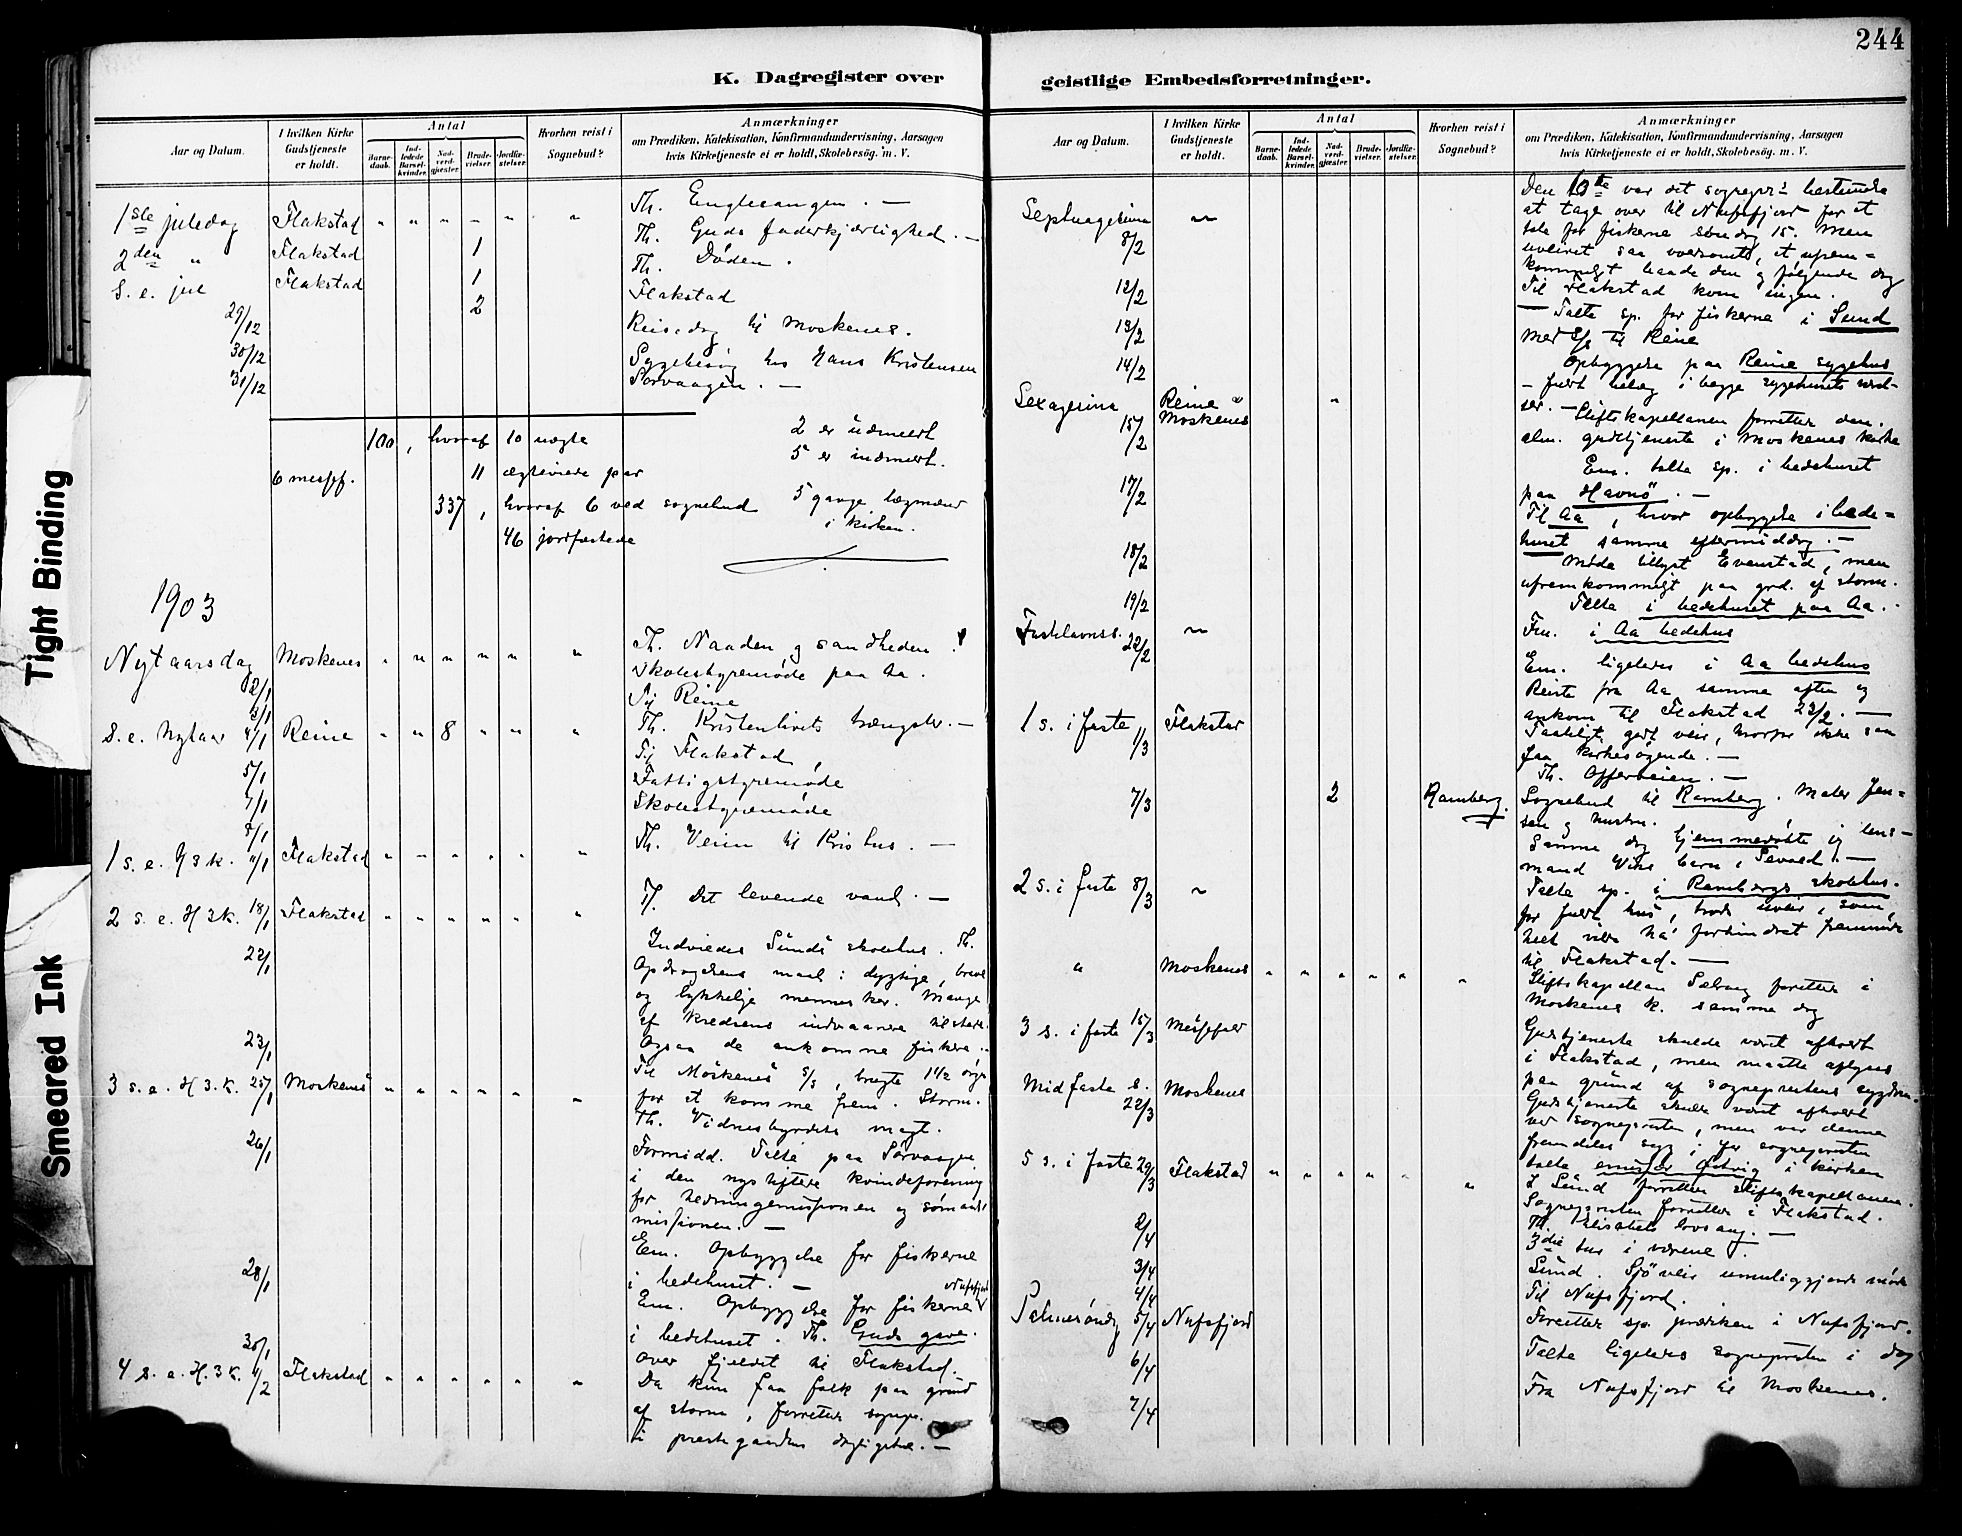 244
K. Dagregister over
Aar og Datum.
I hvilken Kirke Gudstjeneste er holdt.
Antal
Barnedaab.
Indledede Barselkvinder.
Nadverdgjæster.
Brudevielser.
Jordfæstelser.
Hvorhen reist i Sognebud?
Anmærkninger
om Prædiken, Katekisation, Konfirmandundervisning, Aarsagen
hvis Kirketjeneste ei er holdt, Skolebesög. m. V.
1ste juledag Flakstad " " " " " " Th. Englesangen. —
2den " Flakstad 1 Th. Guds faderkjærlighed. —
S. e. jul Flakstad 1 Th. Döden.
29/12 2 Flakstad
30/12 Reisedag til Moskenes.
31/12 Sygebesög hos Hans Kristensen
Sörvaagen. —
100, hvoraf 10 uægte 2 er udmeldt
5 er indmeldt.
6 messf. 11 ægteviede par
337, hvoraf 6 ved sognebud 5 gange lægmænd
i kirken.
46 jordfæstede
1903
Nytaarsdag Moskenes " " " " " " Th. Naaden og sandheden
2/1 Skolestyremöde paa Aa.
3/1 Til Reine
S. e. Nytaar 4/1 Reine " " 8 " " " Th. Kristenlivets trængsler. —
5/1 Til Flakstad
7/1 Fattigstyremöde
8/1 Skolestyremöde
1 s. e. H3k. 11/1 Flakstad " " " " " " Th. Veien til Kristus. —
2 s. e. H3k. 18/1 Flakstad " " " " " " Th. Det levende vand. —
22/1 Indviedes Sunds skolehus. Th.
Opdragelsens maal: dygtige, brave
og lykkelige mennesker. Mange
af kredsens indvaanere tilstede.
Ogsaa de ankomne fiskere.
23/1 Til Moskenes S/S, brugte 1 1/2 dag
for at komme frem. Storm.
3 s. e. H.3.K. 25/1 Moskenes " " " " " " Th. Vidnesbyrdets magt.
26/1 Formidd. Talte paa Sörvaagen
i den nystiftede kvindeforening
for hedningemissionen og sömands
missionen. —
Em. Opbyggelse for fiskerne
i bedehuset. —
28/1 Em. Opbyggelse for fiskerne Nufsfjord
i bedehuset. Th. Guds gave.
30/1 Over fjeldet til Flakstad. —
4 s. e. H.3k. 1/2 Flakstad " " " " " " Da kun faa folk paa grund
af storm, forrettes sognepr.
i prestegaardens dagligstue. —
geistlige Embedsforretninger.
Aar og Datum.
I hvilken Kirke Gudstjeneste er holdt.
Antal
Barnedaab.
Indledede Barselkvinder.
Nadverdgjæster.
Brudevielser.
Jordfæstelser.
Hvorhen reist i Sognebud?
Anmærkninger
om Prædiken, Katekisation, Konfirmandundervisning, Aarsagen
hvis Kirketjeneste ei er holdt, Skolebesög. m. V.
Septuagesima 8/2 Den 13de var det sognepr.s bestemte
at tage over til Nufsfjord for at
tale for fiskerne söndag 15. Men
uveiret saa voldsomt, at ufrem=
kommeligt baade den og fölgende dag
Til Flakstad kom ingen.
12/2 — Talte sp. for fiskerne i Sund
13/2 Med S/S til Reine
14/2 Opbyggelse paa Reine sygehus
— fuldt belæg i begge sygehusets
Sexagesima 15/2 Reine " Moskenes " — Stiftskapellanen forretter den
alm. gudstjeneste i Moskenes kirke
Em. talte sp. i bedehuset
paa Havnö. —
17/2 Til Aa, hvor opbyggelse i bede=
huset samme eftermiddag. —
18/2 Möde tillyst Evenstad, men
ufremkommeligt paa grd. af storm.
19/2 Talte i bedehuset paa Aa.
Fastelavnss. 22/2 Fm. i Aa bedehus
Em. ligeledes i Aa bedehus
Reiste fra Aa samme aften og
ankom til Flakstad 23/2. —
1 s. i faste 1/3 Flakstad Taaleligt godt veir, hvorfor ikke saa
faa kirkesögende. —
Th. Offerveien. —
7/3 2 Ramberg. Sognebud til Ramberg. Maler Jen=
sen og hustru.
Samme dag hjemmedöbte jeg lens=
mand Wiks barn, Sevald. —
2 s. i faste 8/3 Talte sp. i Rambergs skolehus.
for fuldt hus, trods uveir, som,
helt vilde ha' forhindret fremmöde
til Flakstad. —
" Moskenes " " " " " " Stiftskapellan Selvaag forretter i
Moskenes k. samme dag
3 s. i faste 15/3 Messefald Gudstjeneste skulde været afholdt
i Flakstad, men maatte aflyses
paa grund af sogneprestens sygdom.
Midfaste s. 22/3 Moskenes Gudstjeneste skulde været afholdt
ved sognepresten, men var denne
fremdeles syg; for sognepresten
talte emissær i kirken
5 s. i faste 29/3 Flakstad " " " " " " I Sund forretter stiftskapellanen.
Sognepresten forretter i Flakstad.
Th. Elisabets lovsang. —
2/4 3die tur i værene.
3/4 Sund. Sjöveir umuliggjorde möde
4/4 Til Nufsfjord.
Palmesöndag 5/4 Nufsfjord Forretter sp. prædiken i Nufsfjord.
6/4 Talte ligeledes sognepresten i dag
7/4 Fra Nufsfjord til Moskenes.
Tight Binding
Smeared Ink